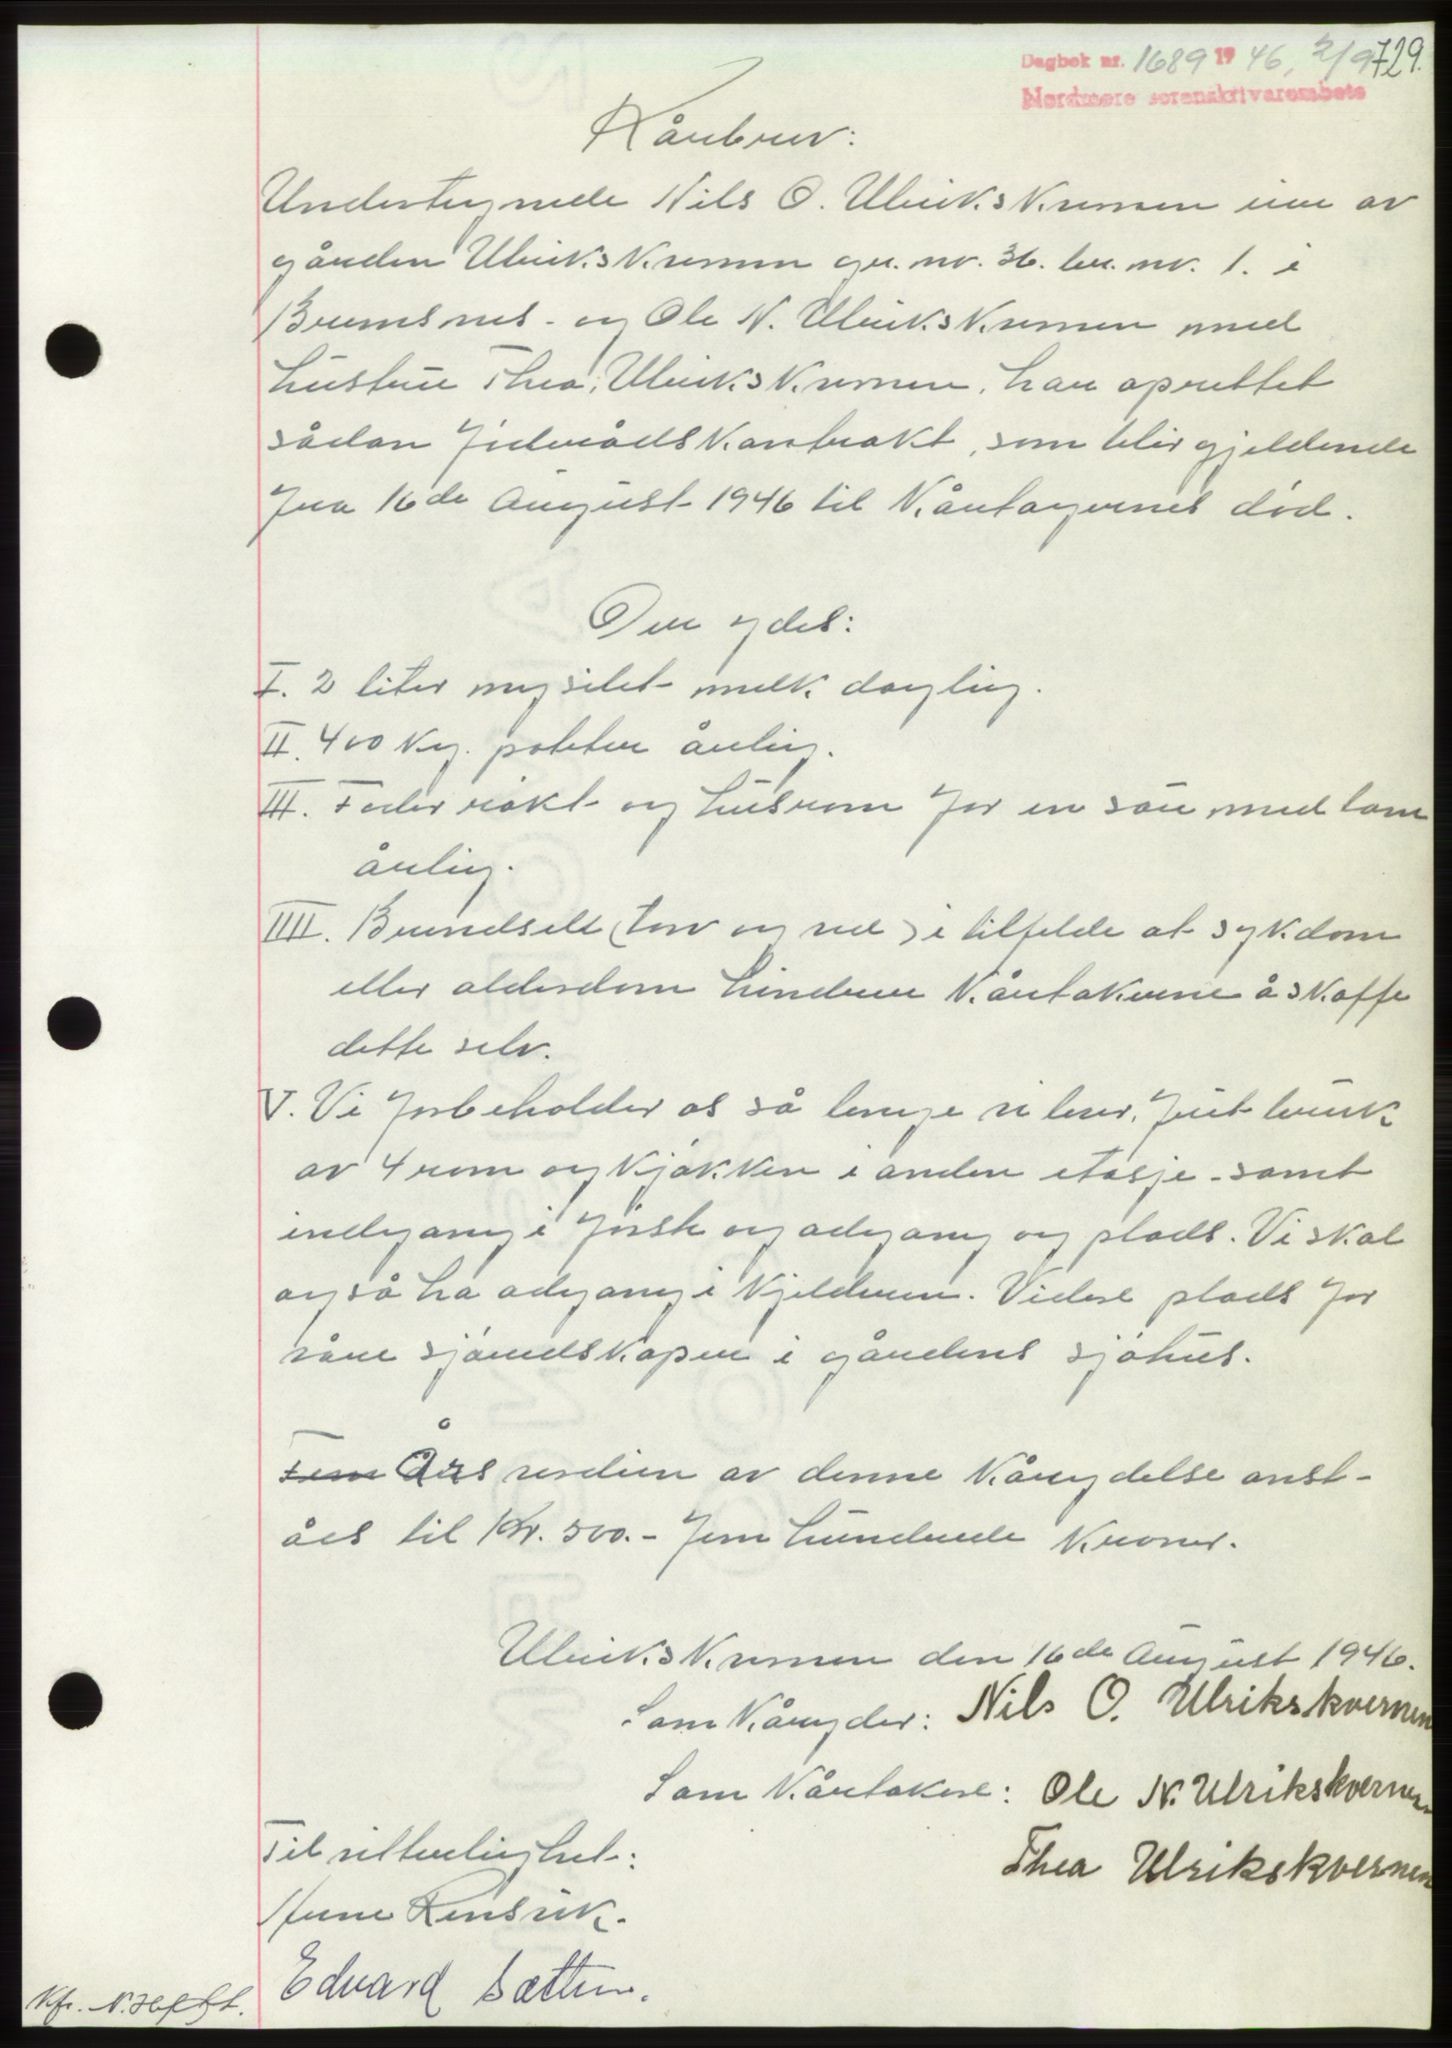 Dagbok nr. 1689 19 46, 2/9 729.
Nordmøre sorenskriverembete
Kårbrev:
Undertegnede Nils O. Ulrikskvernen eier av
gården Ulrikskvernen gr. nr. 36. br. nr. 1. i
Bremsnes - og Ole N. Ulrikskvernen med
hustru Thea, Ulrikskvernen, har oprettet
sådan föderådskontrakt, som blir gjeldende
fra 16de August 1946 til Kårtagernes död.
Der ydes:
I. 2 liter nysilet melk daglig.
II. 400 Kg. poteter årlig.
III. Foder rökt og husrom for en sau med lam
årlig.
IIII. Brendsell (torv og ved) i tilfelde at sykdom
eller alderdom hindrer Kårtakerne å skaffe
dette selv.
V. Vi forbeholder os så lenge vi lever, frit bruk
av 4 rom og Kjökken i anden etasje - samt
indgang i förste og adgang og plads. Vi skal
også ha adgang i Kjelderen. Videre plads for
våre sjöredskaper i gårdens sjöhus.
Fem Års verdien av denne Kårydelse anst-
åes til Kr. 500.- fem hundrede Kroner.
Ulrikskvernen den 16de August 1946.
Som Kåryder: Nils O. Ulrikskvernen
Som Kårtakere: Ole N. Ulrikskvernen
Thea Ulrikskvernen
Til vitterlighet:
Rensvik.
Edvard Sætter.
Kfr.